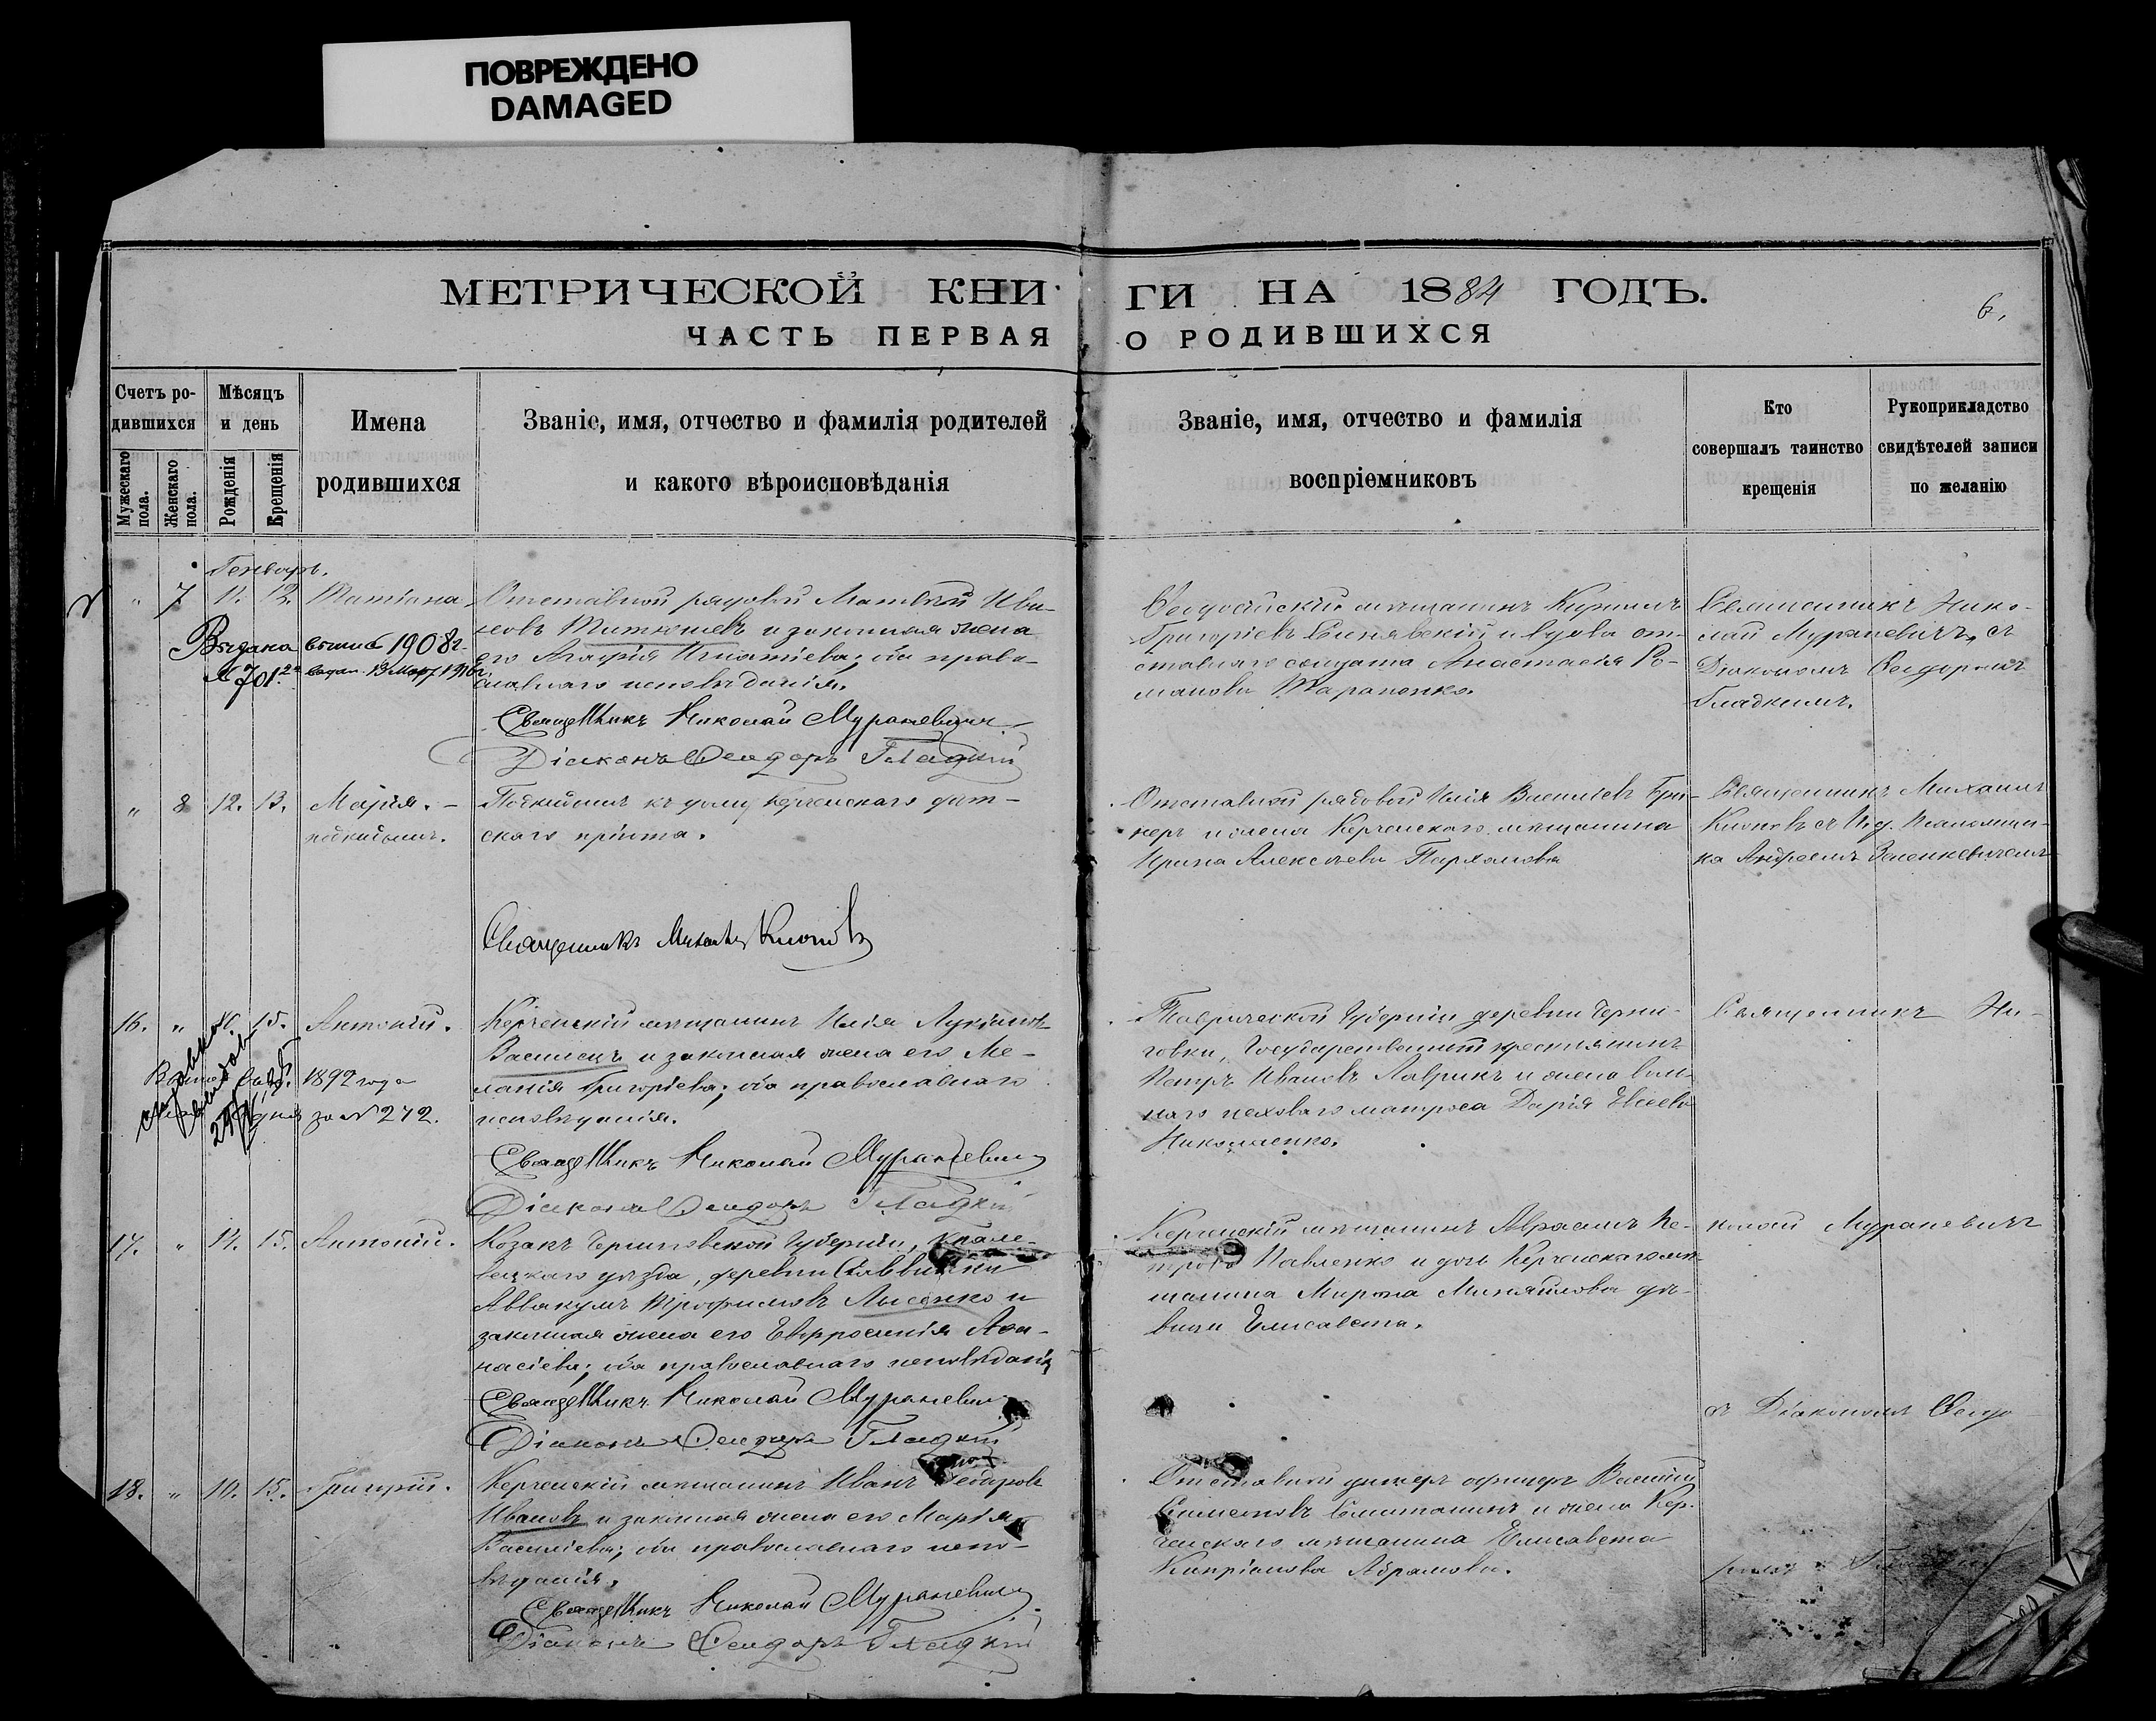 ПОВРЕЖДЕНО
DAMAGED
МЕТРИЧЕСКОЙ КНИГИ НА 1884 ГОДЪ.
6,
ЧАСТЬ ПЕРВАЯ О РОДИВШИХСЯ
Счетъ ро-
дившихся
Мужескаго пола.
Женскаго пола.
Мѣсяцъ
и день
Рожденія
Крещенія
Имена
родившихся
Званіе, имя, отчество и фамилія родителей
и какого вѣроисповѣданія
Званіе, имя, отчество и фамилія
воспріемниковъ
Кто
совершалъ таинство
крещенія
Рукоприкладство
свидѣтелей записи
по желанію
Генварь.
" 7 11. 12. Татіана
Отставной рядовой Матвій Ива-
новъ Титюшевъ и законная жена
его Агафія Игнатіева; оба право-
славнаго исповѣданія.
Священникъ Николай Мураневичъ
Діаконъ Феодоръ Гладкій
Выдана 1908 г.
№ 701
Феодосійскій мѣщанинъ Кириллъ
Григоріевъ Синявскій и вдова от-
ставнаго солдата Анастасія Ро-
манова Тараненко.
Священникъ Нико-
лай Мураневичъ, съ
Діакономъ Феодоромъ
Гладкимъ.
" 8 12. 13. Марія. -
подкидышъ.
Подкидышъ къ дому Керченскаго дѣт-
скаго пріюта.
Священникъ Михаилъ Кионовъ
Отставной рядовой Илія Васильевъ Бри-
неръ и жена Керченскаго мѣщанина
Ирина Алексѣева Пархомова
Священникъ Михаилъ
Кионовъ съ И. д. Псаломщи-
ка Андреемъ Зенкевичемъ
16. " 15. Антоній.
1892 года
за № 272.
справка
Керченскій мѣщанинъ Илія Лукіановъ
Василецъ и законная жена его Ме-
ланія Григоріева; оба православнаго
исповѣданія.
Священникъ Николай Мураневичъ
Діаконъ Феодоръ Гладкій
Таврической Губерніи деревни Черни-
говки, Государственный крестьянинъ
Петръ Ивановъ Лаврикъ и жена воль-
наго матроса Дарія Евсеева
Николаенко.
Священникъ Ни-
17. " 14. 15. Антоній.
Козакъ Черниговской Губерніи, Кроле-
вецкаго уѣзда, деревни
Аввакумъ Трофимовъ Лысенко и
законная жена его Евфросинія Афа-
насіева; оба православнаго исповѣданія
Священникъ Николай Мураневичъ
Діаконъ Феодоръ Гладкій
Керченскій мѣщанинъ Авраамъ Пе-
тровъ Павленко и дочь Керченскаго мѣ-
щанина Мирона Михайлова дѣ-
вица Елисавета.
колай Мураневичъ
съ Діакономъ Феодо-
18. " 10. 15. Григорій.
Керченскій мѣщанинъ Иванъ Федоровъ
Ивановъ и законная жена его Марія
Василіева; оба православнаго испо-
вѣданія.
Священникъ Николай Мураневичъ
Діаконъ Феодоръ Гладкій
Отставной унтеръ офицеръ Василій
Симеоновъ и жена Кер-
ченскаго мѣщанина Елисавета
Кипріанова Абрамова.
ромъ Гладкимъ